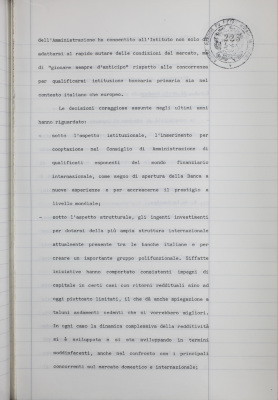 dell'Amministrazione ha consentito all'Istituto non solo di
adattarsi al rapido mutare delle condizioni del mercato, ma
di "giocare sempre d'anticipo" rispetto alla concorrenza
per qualificarsi istituzione bancaria primaria sia nel
contesto italiano che europeo.
Le decisioni coraggiose assunte negli ultimi anni
hanno riguardato:
- sotto l'aspetto istituzionale, l'inserimento per
cooptazione nel Consiglio di Amministrazione di
qualificati esponenti del mondo finanziario
internazionale, come segno di apertura della Banca a
nuove esperienze e per accrescerne il prestigio a
livello mondiale;
- sotto l'aspetto strutturale, gli ingenti investimenti
per dotarsi della più ampia struttura internazionale
attualmente presente tra le banche italiane e per
creare un importante gruppo polifunzionale. Siffatte
iniziative hanno comportato consistenti impegni di
capitale in certi casi con ritorni reddituali sino ad
oggi piuttosto limitati, il che dà anche spiegazione a
taluni andamenti reddituali che si vorrebbero migliori.
In ogni caso la dinamica complessiva della redditività
si è sviluppata e si sta sviluppando in termini
soddisfacenti, anche nel confronto con i principali
concorrenti sul mercato domestico e internazionale;